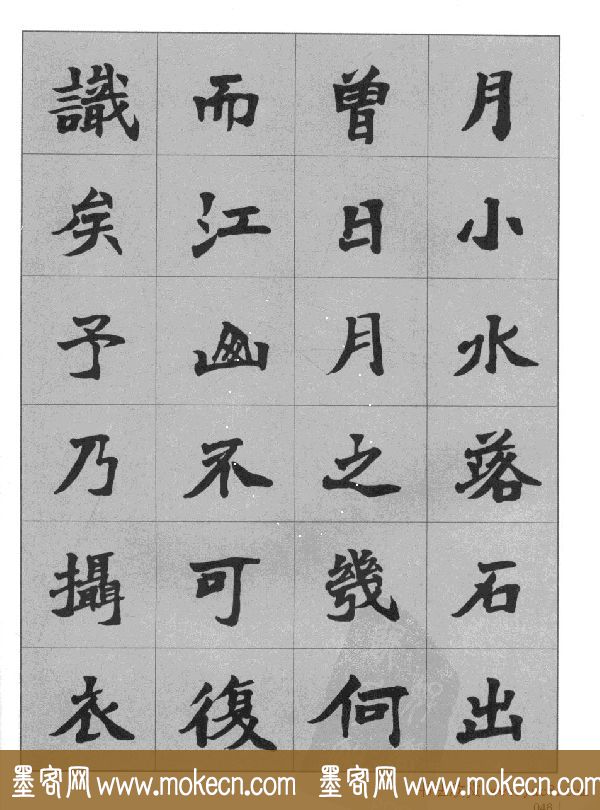 月小水落石出
曾日月之幾何
而江不可復
識矣予乃攝衣
墨客网 www.mokecn.com 墨客网 www.mokecn.com
046